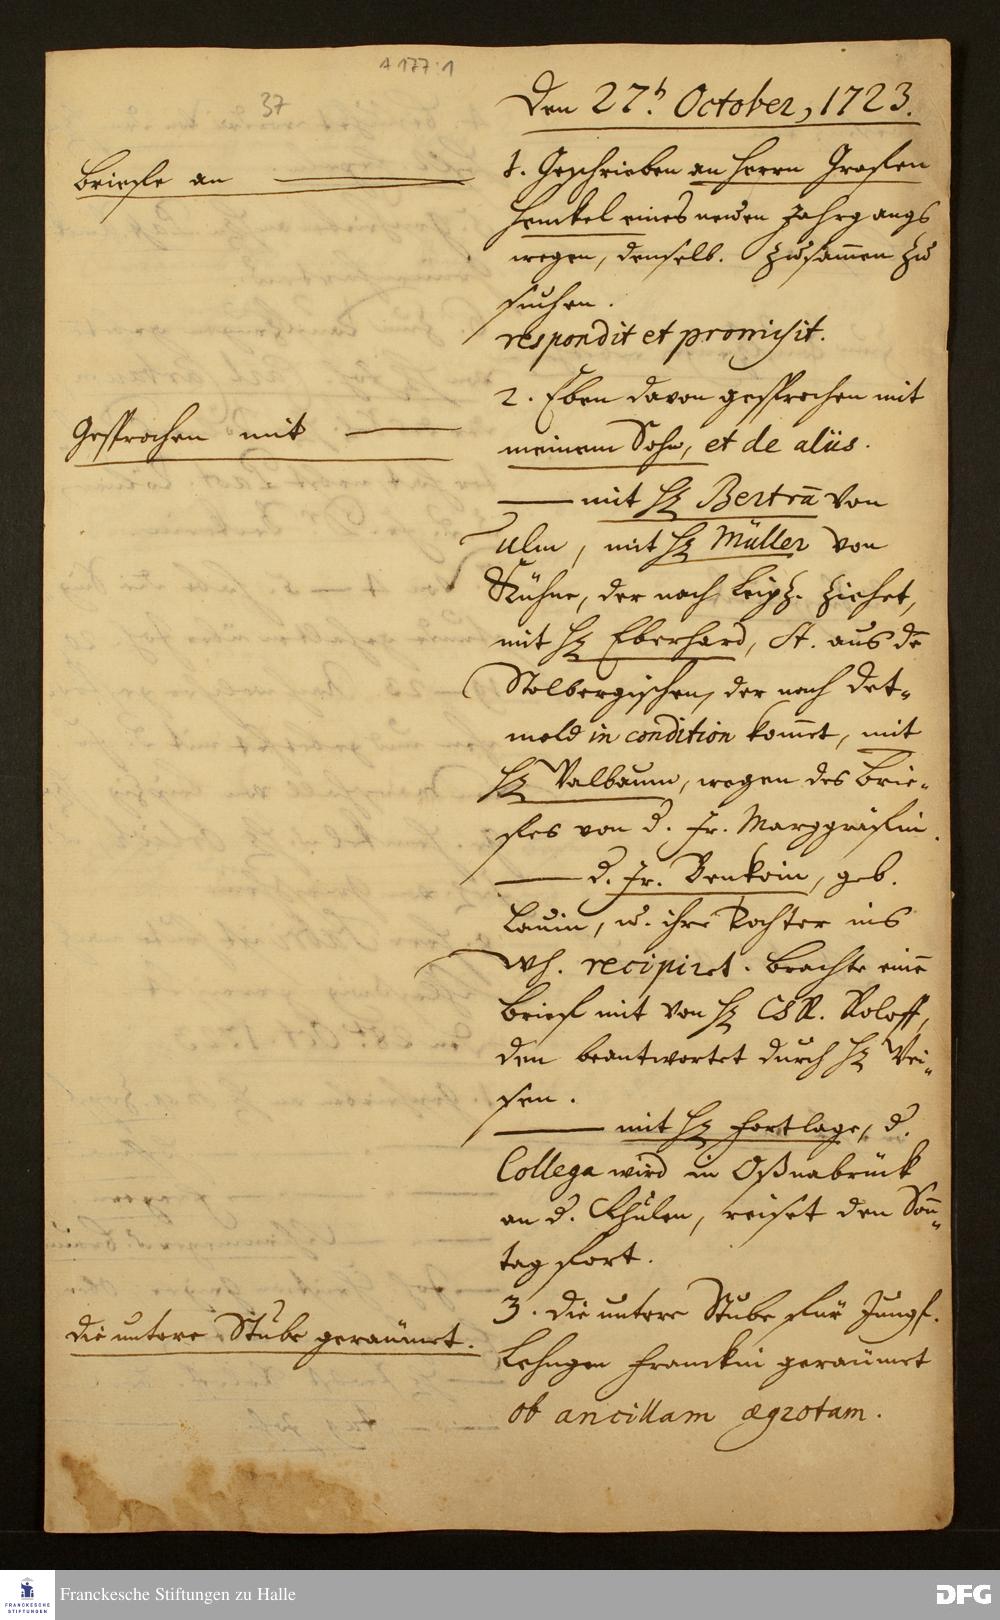 A 177:1
37
Den 27.t October, 1723.
Briefe an
1. Geschrieben an Herrn Grafen
Henckel eines neuen Jahrgangs
wegen, denselb. zusam̄en zu
suchen.
respondit et promisit.
Gesprochen mit
2. Eben davon gesprochen mit
meinem Sohn, et de aliis.
mit H. Bertrā von
Ulm, mit H. Müller von
Kühne, der nach Leipz. ziehet,
mit H. Eberhard, St. aus dē
Stolbergischen, der nach Det-
mold in condition kom̄et, mit
H. Valbaum, wegen des Brie-
fes von d. Fr. Marggräfin.
d. Fr. Benkoin, geb.
Lauin, u. ihre Tochter ins
Wh. recipiret. brachte einē
Brief mit von H. CSR. Roloff,
den beantwortet durch H. Wei-
sen.
mit H. Fortlage, d.
Collega wird in Oßnabrück
an d. Schulen, reiset den Son̄-
tag fort.
die untere Stube geraümet.
3. die untere Stube für Jungf.
Lehngen Franckin geraümet
ob ancillam ægrotam.
Franckesche Stiftungen zu Halle
FRANCKESCHE
STIFTUNGEN
DFG